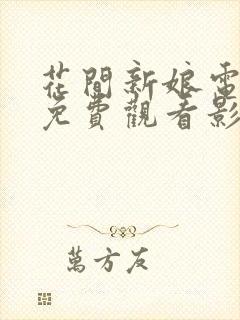 花間新娘電
免費觀看影
萬方友